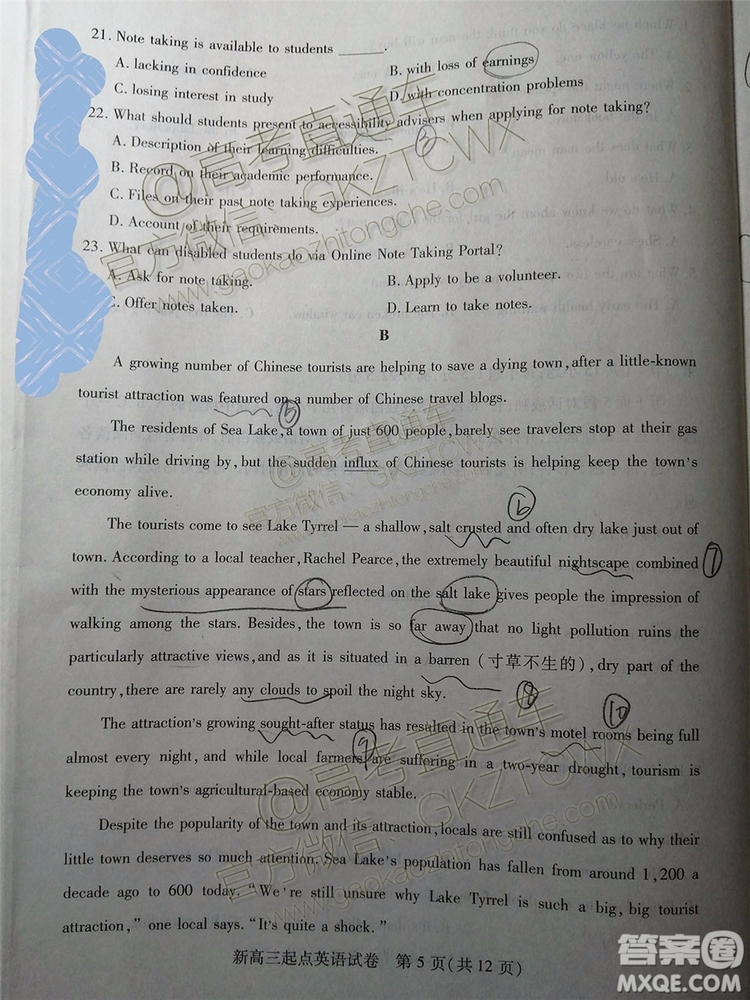 21. Note taking is available to students ______.
A. lacking in confidence B. with loss of earnings
C. losing interest in study D. with concentration problems
22. What should students present to accessibility advisers when applying for note taking?
A. Description of their learning difficulties.
B. Record on their academic performance.
C. Files on their past note taking experiences.
D. Account of their requirements.
23. What can disabled students do via Online Note Taking Portal?
A. Ask for note taking. B. Apply to be a volunteer.
C. Offer notes taken. D. Learn to take notes.
B
A growing number of Chinese tourists are helping to save a dying town, after a little-known
tourist attraction was featured on a number of Chinese travel blogs.
The residents of Sea Lake, a town of just 600 people, barely see travelers stop at their gas
station while driving by, but the sudden influx of Chinese tourists is helping keep the town's
economy alive.
The tourists come to see Lake Tyrrel — a shallow, salt crusted and often dry lake just out of
town. According to a local teacher, Rachel Pearce, the extremely beautiful nightscape combined
with the mysterious appearance of stars reflected on the salt lake gives people the impression of
walking among the stars. Besides, the town is so far away that no light pollution ruins the
particularly attractive views, and as it is situated in a barren (寸草不生的), dry part of the
country, there are rarely any clouds to spoil the night sky.
The attraction's growing sought-after status has resulted in the town's motel rooms being full
almost every night, and while local farmers are suffering in a two-year drought, tourism is
keeping the town's agricultural-based economy stable.
Despite the popularity of the town and its attraction, locals are still confused as to why their
little town deserves so much attention. Sea Lake's population has fallen from around 1,200 a
decade ago to 600 today. "We're still unsure why Lake Tyrrel is such a big, big tourist
attraction," one local says. "It's quite a shock."
新高三起点英语试卷 第 5 页(共 12 页)
@高考直通车
官方微信: GKZTCWX
www.gaokaozhitongche.com
@高考直通车
官方微信: GKZTCWX
www.gaokaozhitongche.com
@高考直通车
官方微信: GKZTCWX
www.gaokaozhitongche.com
5
6
7
8
9
10
答案圈
MXQE.COM